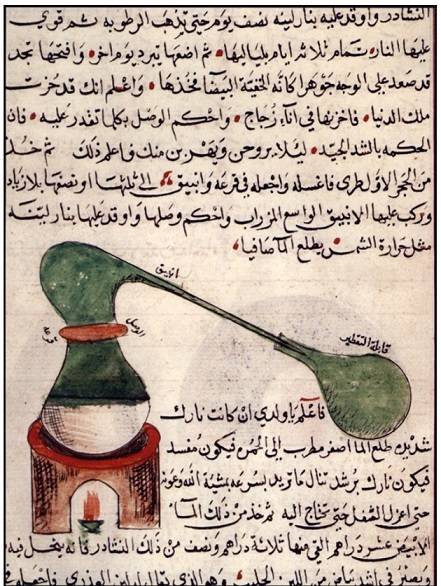 النشادر واوقد عليه بنار لينه نصف يوم حتى تذهب الرطوبه ثم قوي
عليها النار تمام ثلاثة ايام بلياليها ثم اضعها تبرد يوم اخر وافتحها تجد
قد صعد على الوجه جوهرا كانه البيضا فخذها واعلم انك قد حزت
ملك الدنيا فاخزنها في اناء زجاج واحكم الوصل بكلما تقدر عليه فان
الحكمه بالشد الجيد ليلا يروحن منك فاعلم ذلك ثم خذ
من الحجر الاول طري فاغسله واجعله في قرعه وانبيق الى ثلثها او نصفها بلا زياده
وركب عليها الانبيق الواسع المزراب واحكم وصلها واوقد عليها بنار لينه
مثل حرارة الشمس يطلع الما صافيا
انبيق
الوصل
قرعه
قابلة التقطير
فاعلم يا ولدي ان كانت نارك
شديده طلع الما اصفر الى الحمره فيكون مفسد
فيكون نارك برشد تنال ما تريد بسرعه بمشية الله وعونه
حتى اعزل الثفل حتى تحتاج اليه ثم خذ من ذلك الما
الابيض عشر دراهم التي منها ثلاثة دراهم ونصف من ذلك النشادر فانه ينحل فيه